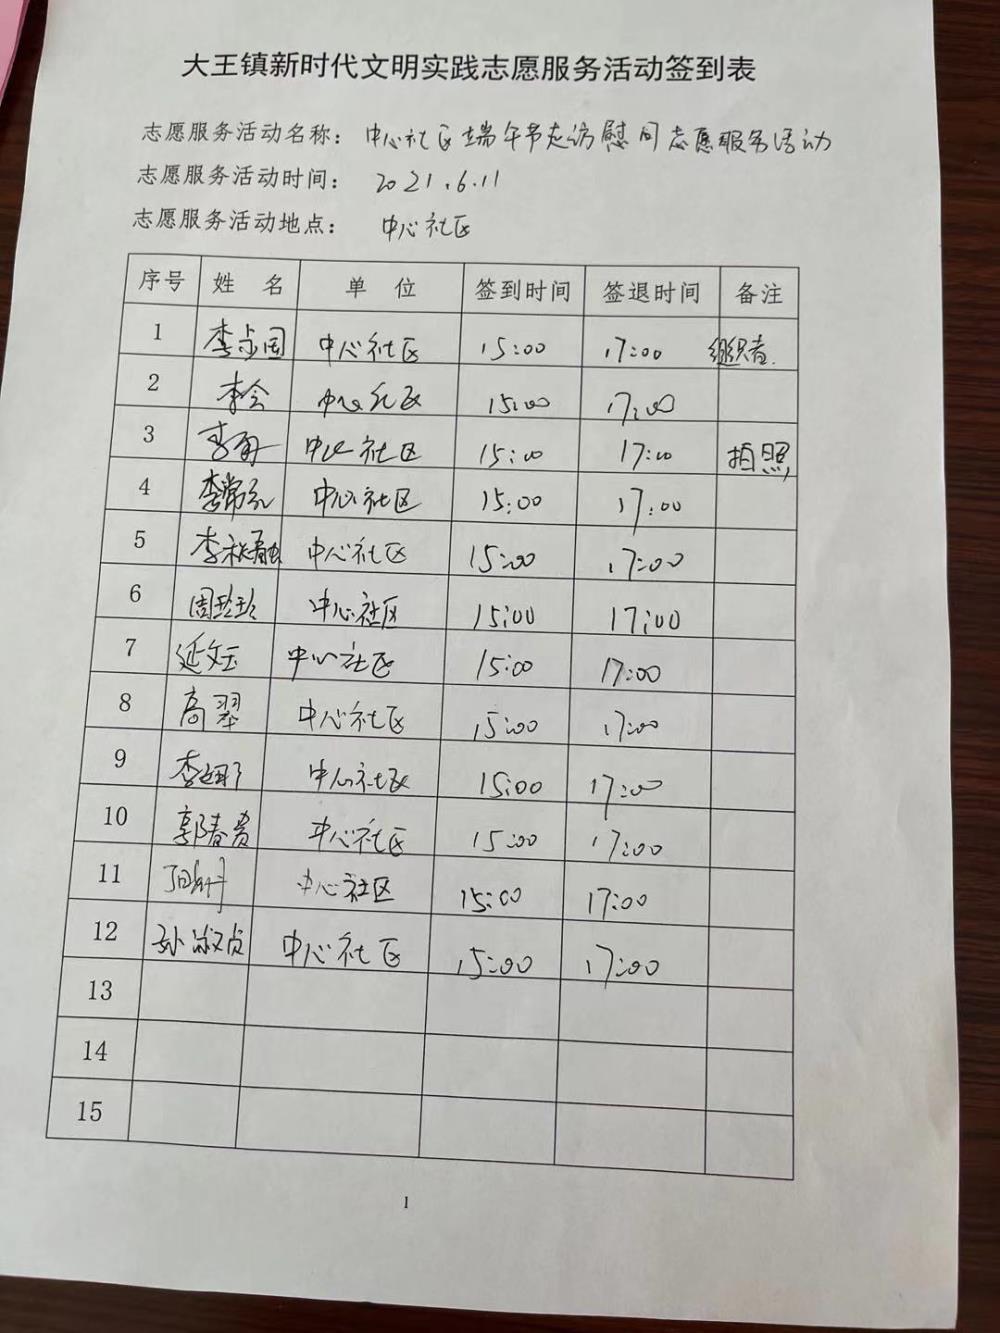 大王镇新时代文明实践志愿服务活动签到表
志愿服务活动名称： 中心社区端午节走访慰问志愿服务活动
志愿服务活动时间： 2021.6.11
志愿服务活动地点： 中心社区
序号 姓 名 单 位 签到时间 签退时间 备注
1 中心社区 15:00 17:00 组织者.
2 李会 中心社区 15:00 17:00
3 中心社区 15:00 17:00 拍照
4 中心社区 15:00 17:00
5 中心社区 15:00 17:00
6 周玲玲 中心社区 15:00 17:00
7 延文玉 中心社区 15:00 17:00
8 高翠 中心社区 15:00 17:00
9 中心社区 15:00 17:00
10 郭春贵 中心社区 15:00 17:00
11 中心社区 15:00 17:00
12 孙淑贞 中心社区 15:00 17:00
13
14
15
1